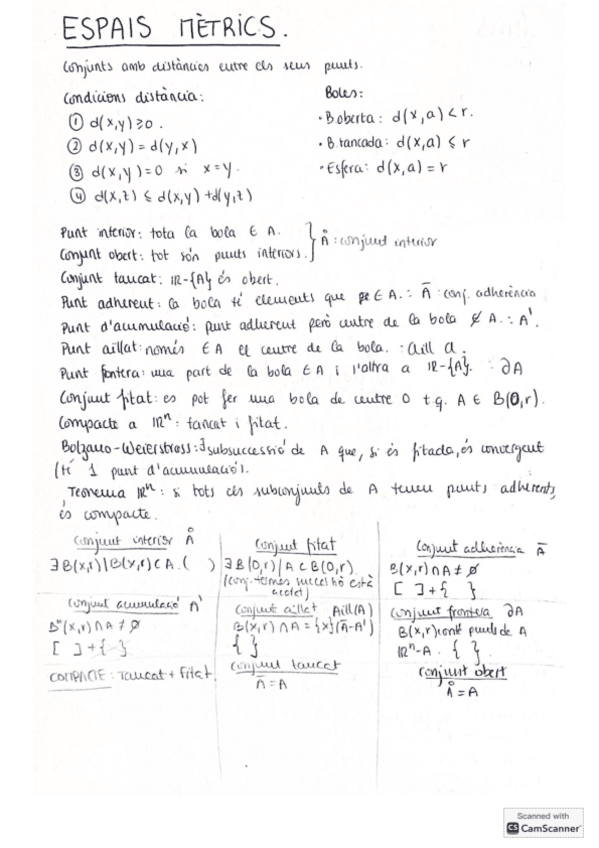 ESPAIS MÈTRICS.
Conjunts amb distàncies entre els seus punts.
Condicions distància:
① d(x,y) ≥ 0.
② d(x,y) = d(y,x)
③ d(x,y) = 0 si x=y.
④ d(x,z) ≤ d(x,y) + d(y,z)
Boles:
· B. oberta: d(x,a) < r.
· B. tancada: d(x,a) ≤ r
· Esfera: d(x,a) = r
Punt interior: tota la bola ∈ A.
Conjunt obert: tot són punts interiors.
Å : conjunt interior
Conjunt tancat: IR-{A} és obert.
Punt adherent: la bola té elements que ∈ A. : Ā : conj. adherència
Punt d'acumulació: punt adherent però centre de la bola ∉ A. : A'.
Punt aïllat: només ∈ A el centre de la bola. : aïll a.
Punt frontera: una part de la bola ∈ A i l'altra a IR-{A}. : ∂A
Conjunt fitat: es pot fer una bola de centre 0 t.q. A ∈ B(0,r).
Compacte a IRⁿ: tancat i fitat.
Bolzano-Weierstrass: ∃ subsuccessió de A que, si és fitada, és convergent
(té 1 punt d'acumulació).
Teorema IRⁿ: si tots els subconjunts de A tenen punts adherents,
és compacte.
Conjunt interior Å
∃ B(x,r) | B(x,r) ⊂ A. ( )
Conjunt fitat
∃ B(0,r) | A ⊂ B(0,r)
(conj. termes successió està
acotat)
Conjunt adherència Ā
B(x,r) ∩ A ≠ ∅
[ ] + { }
Conjunt acumulació A'
B*(x,r) ∩ A ≠ ∅
[ ] + { }
Conjunt aïllat Aïll(A)
B(x,r) ∩ A = {x} (Ā-A')
{ }
Conjunt frontera ∂A
B(x,r) conté punts de A
IRⁿ-A. { }
COMPACTE: Tancat + Fitat.
Conjunt tancat
Ā = A
Conjunt obert
Å = A
Scanned with
CS CamScanner